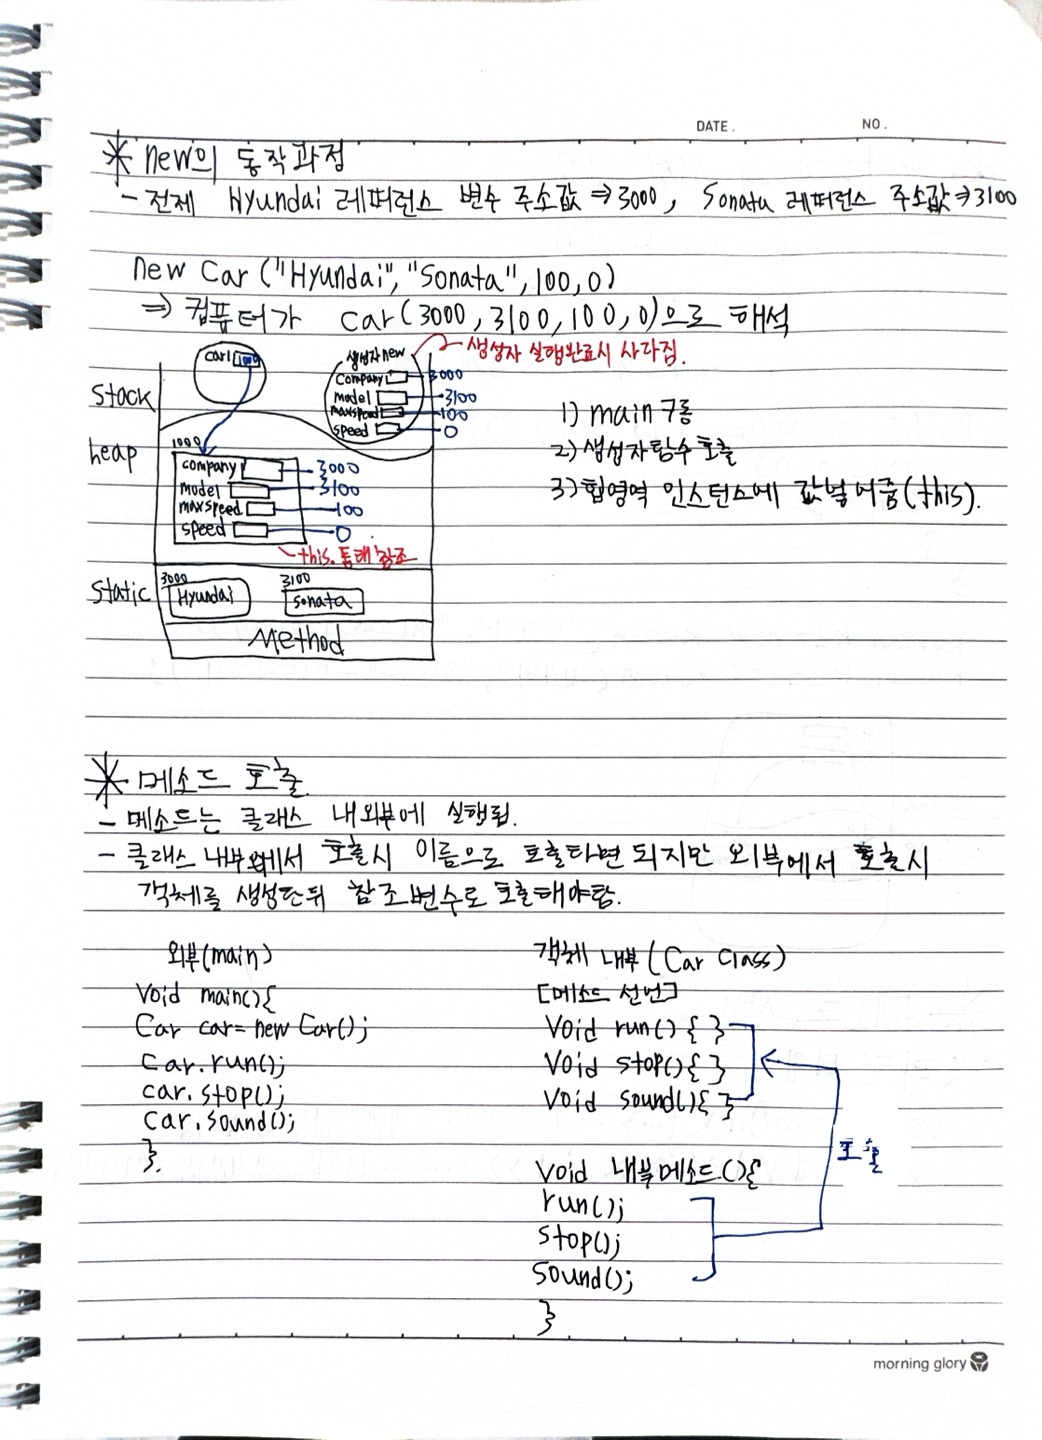 DATE. NO.
* new의 동작과정
- 전제 Hyundai 레퍼런스 변수 주소값 ⇒ 3000, Sonata 레퍼런스 주소값 ⇒ 3100
new Car ("Hyundai", "Sonata", 100, 0)
⇒ 컴퓨터가 Car(3000, 3100, 100, 0)으로 해석
생성자 실행완료시 사라짐.
car1 1000
생성자 new
company 3000
model 3100
maxspeed 100
speed 0
Stack
heap
1000
company 3000
model 3100
maxspeed 100
speed 0
this. 통해 참조
1) main 구동
2) 생성자함수 호출
3) 힙영역 인스턴스에 값넣어줌(this).
Static
3000 3100
Hyundai Sonata
Method
* 메소드 호출
- 메소드는 클래스 내외부에 실행됨.
- 클래스 내부에서 호출시 이름으로 호출하면 되지만 외부에서 호출시
객체를 생성한뒤 참조변수로 호출해야함.
외부(main)
Void main(){
Car car = new Car();
Car.run();
car.stop();
Car.sound();
}.
객체 내부 (Car Class)
[메소드 선언]
Void run() { }
Void stop() { }
Void sound() { }
호출
Void 내부메소드(){
run();
stop();
Sound();
}
morning glory